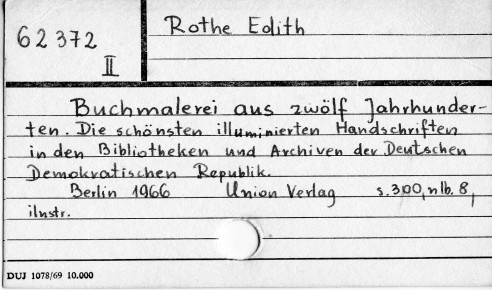 62372
II
Rothe Edith
Buchmalerei aus zwölf Jahrhunder-
ten. Die schönsten illuminierten Handschriften
in den Bibliotheken und Archiven der Deutschen
Demokratischen Republik.
Berlin 1966 Union Verlag s. 300, nlb. 8,
ilustr.
DUJ 1078/69 10.000